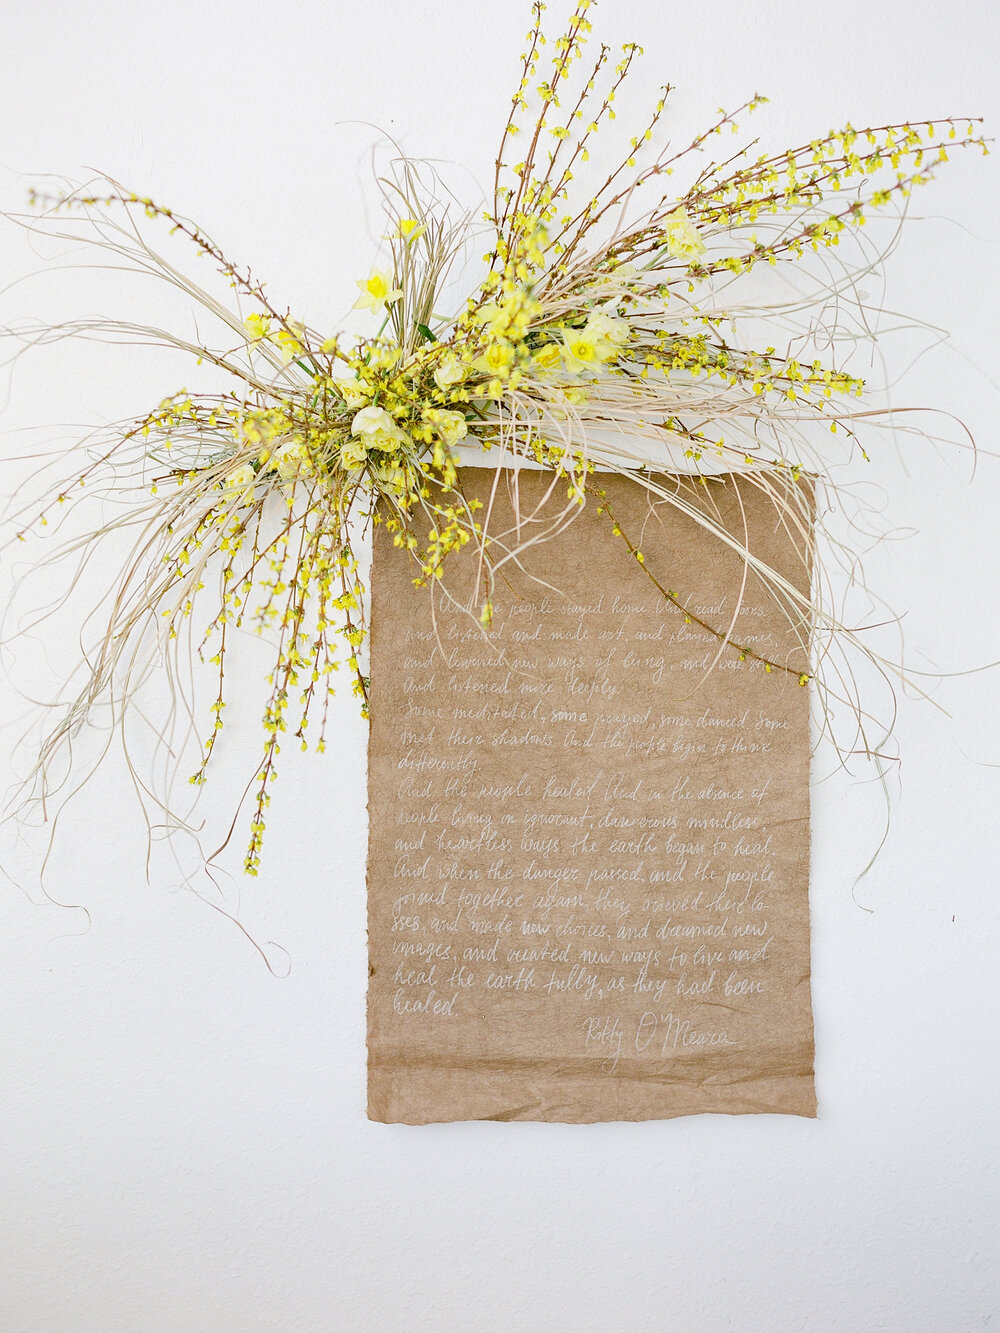 And the people stayed home And read books
and listened and made art, and played games,
and learned new ways of being, and were still
And listened more deeply.
Some meditated, some prayed, some danced some
met their shadows. And the people begin to think
differently.
And the people healed And in the absence of
people living in ignorant, dangerous mindless,
and heartless ways, the earth began to heal.
And, when the danger passed, and the people
joined together again, they grieved their lo-
sses, and made new choices, and dreamed new
images, and created new ways to live and
heal the earth fully, as they had been
healed.
O'Meara